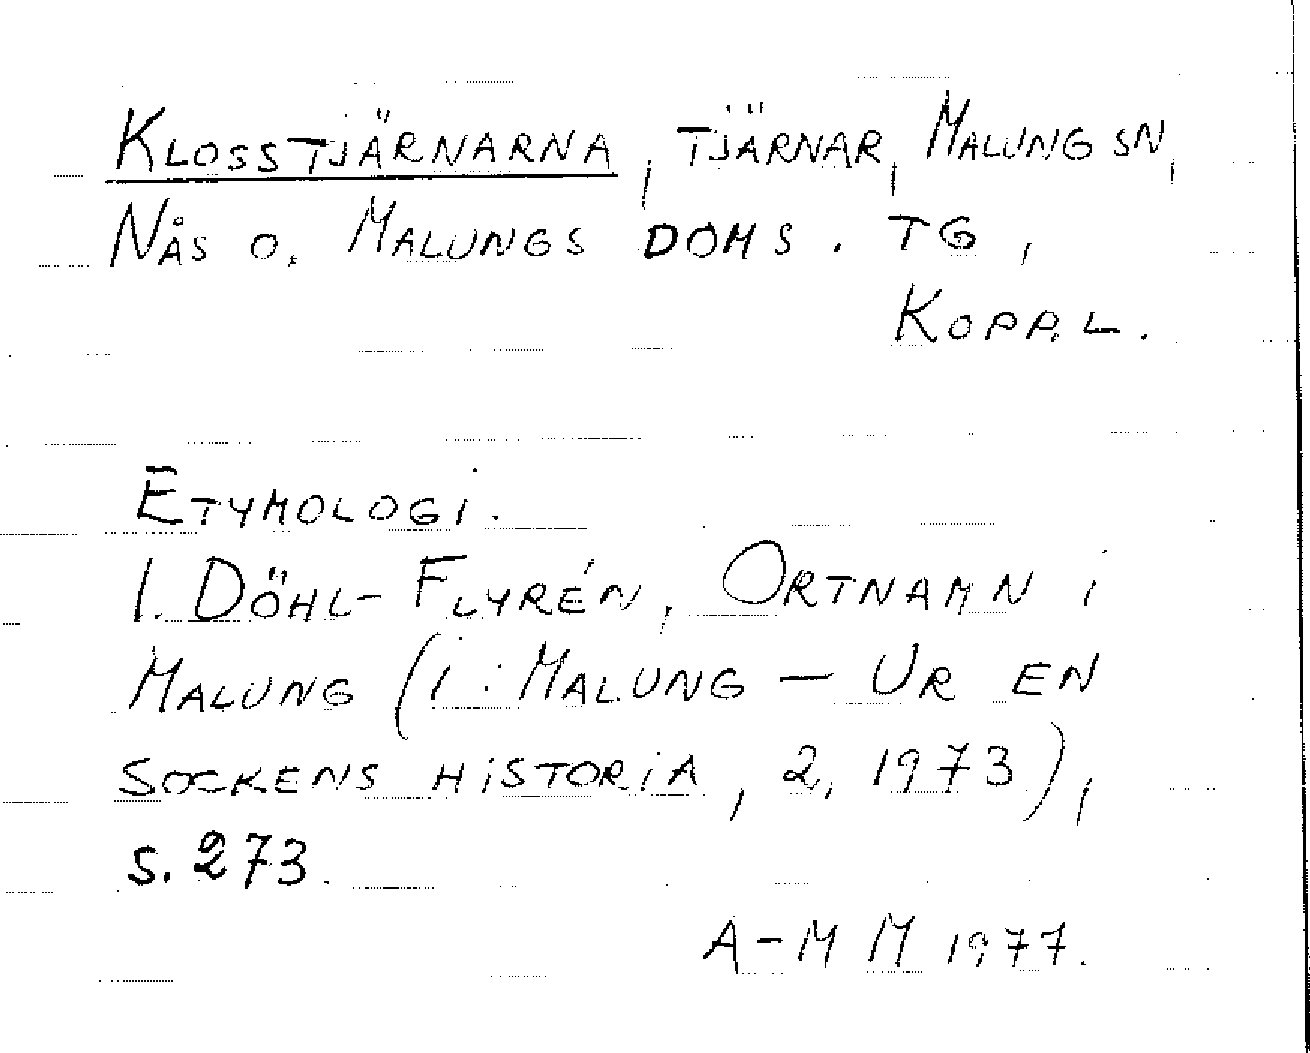 KLOSSTJÄRNARNA, TJÄRNAR, MALUNG SN,
NÅS O. MALUNGS DOMS. TG,
KOPP. L.
ETYMOLOGI.
I. DÖHL-FLYRÉN, ORTNAMN I
MALUNG (I: MALUNG – UR EN
SOCKENS HISTORIA, 2, 1973),
S. 273.
A-M M 1977.